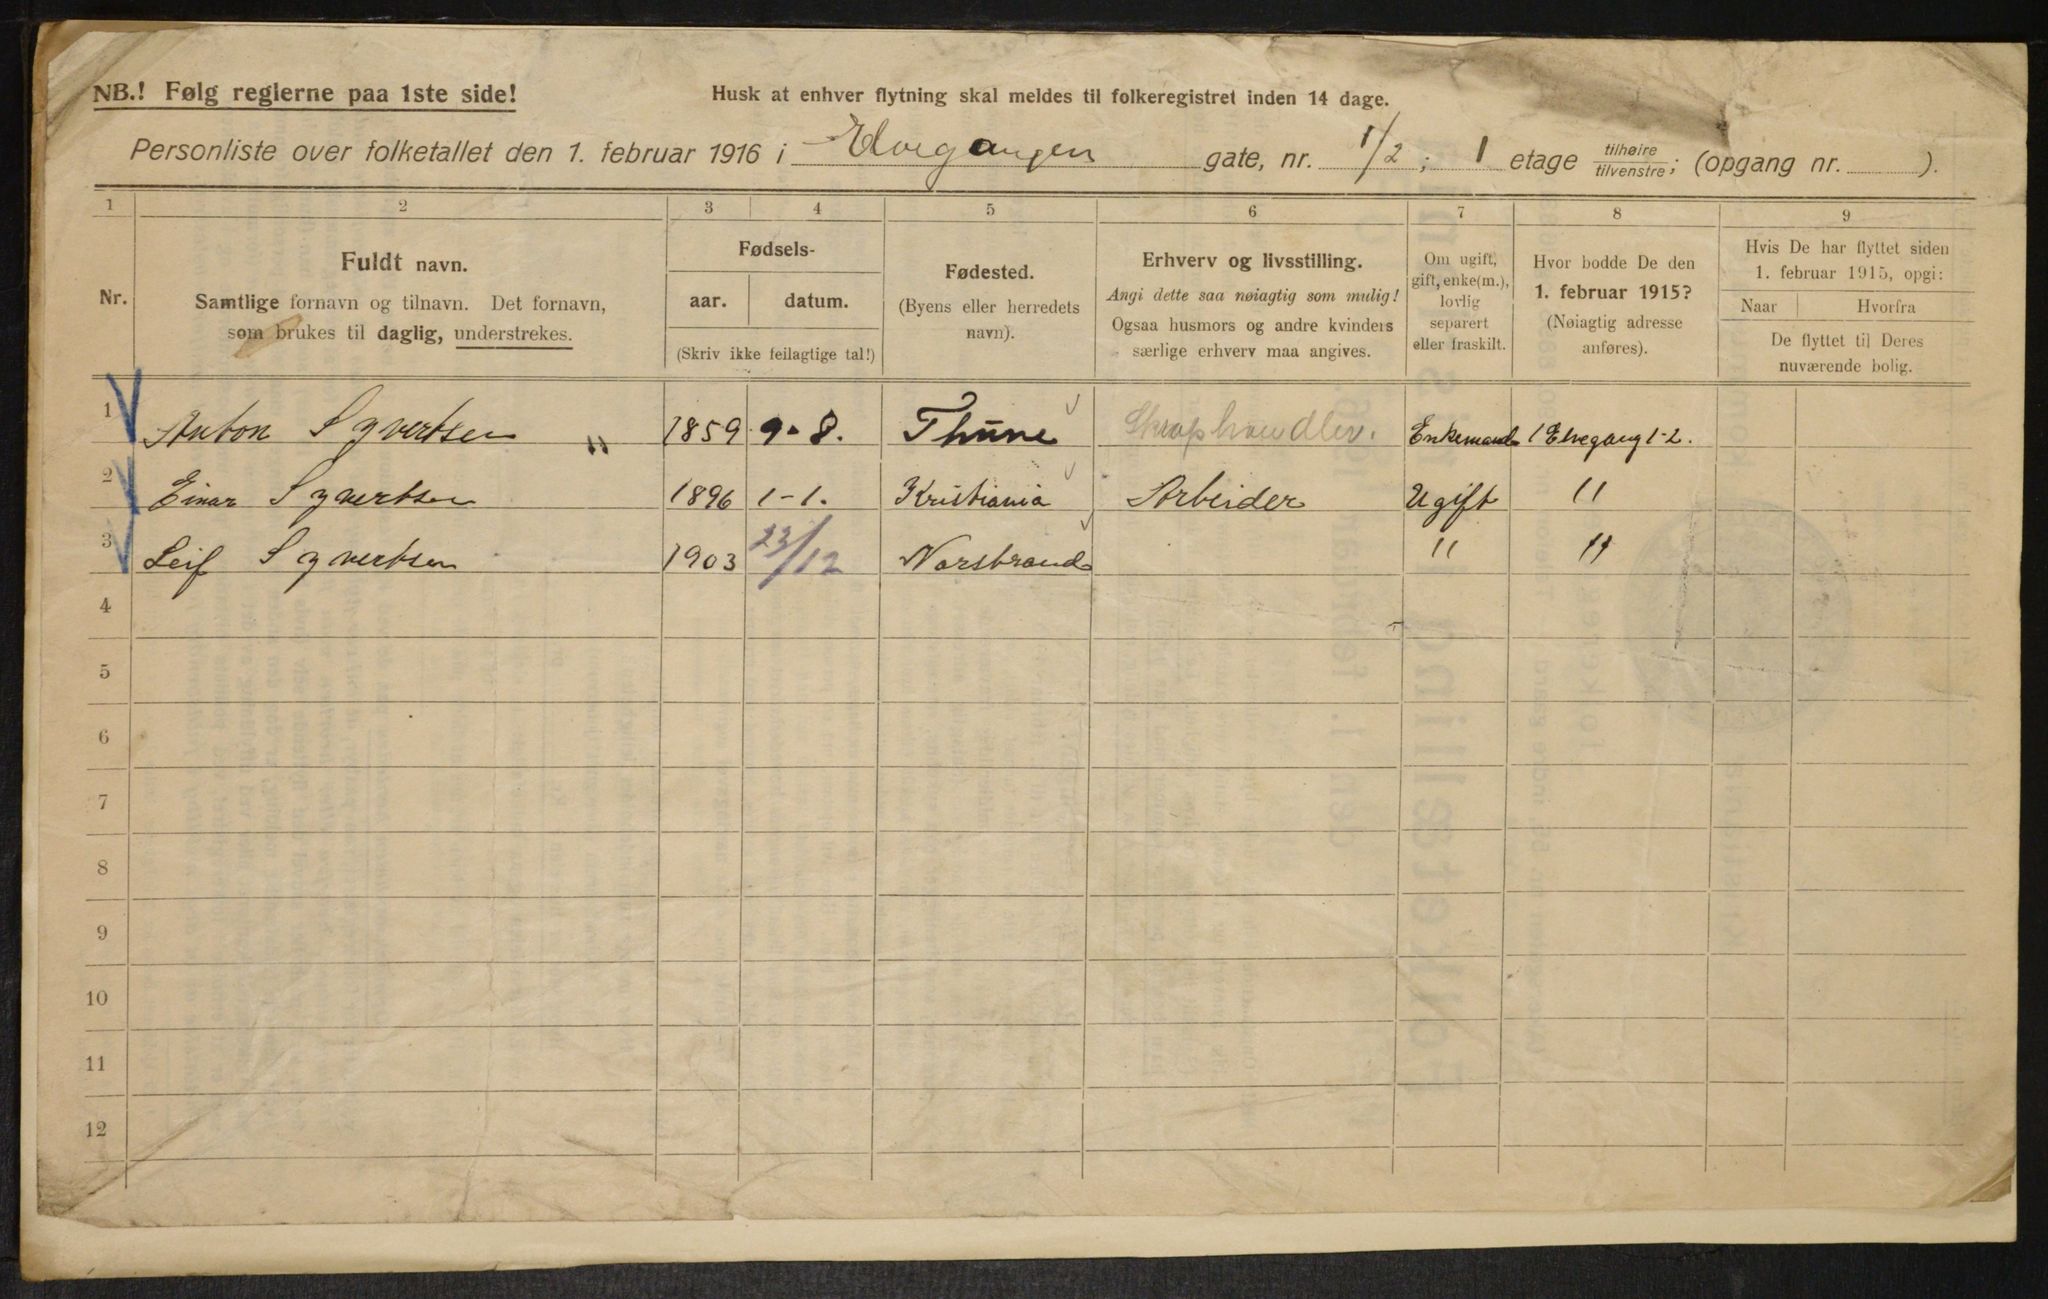 NB.! Følg reglerne paa 1ste side!
Husk at enhver flytning skal meldes til folkeregistret inden 14 dage.
Personliste over folketallet den 1. februar 1916 i Elvegangen gate, nr. 1/2 ; 1 etage tilhøire/tilvenstre; (opgang nr. ).
1 2 3 4 5 6 7 8 9
Nr.
Fuldt navn.
Samtlige fornavn og tilnavn. Det fornavn,
som brukes til daglig, understrekes.
Fødsels-
aar. datum.
(Skriv ikke feilagtige tal!)
Fødested.
(Byens eller herredets
navn).
Erhverv og livsstilling.
Angi dette saa nøiagtig som mulig!
Ogsaa husmors og andre kvinders
særlige erhverv maa angives.
Om ugift,
gift, enke(m.),
lovlig
separert
eller fraskilt.
Hvor bodde De den
1. februar 1915?
(Nøiagtig adresse
anføres).
Hvis De har flyttet siden
1. februar 1915, opgi:
Naar Hvorfra
De flyttet til Deres
nuværende bolig.
1 Anton Syvertsen " 1859 9-8. Thune Skraphandler. Enkemand 1 Elvegang 1-2.
2 Einar Syvertsen 1896 1-1. Kristiania Arbeider Ugift "
3 Leif Syvertsen 1903 23/12 Narstrand " "
4
5
6
7
8
9
10
11
12